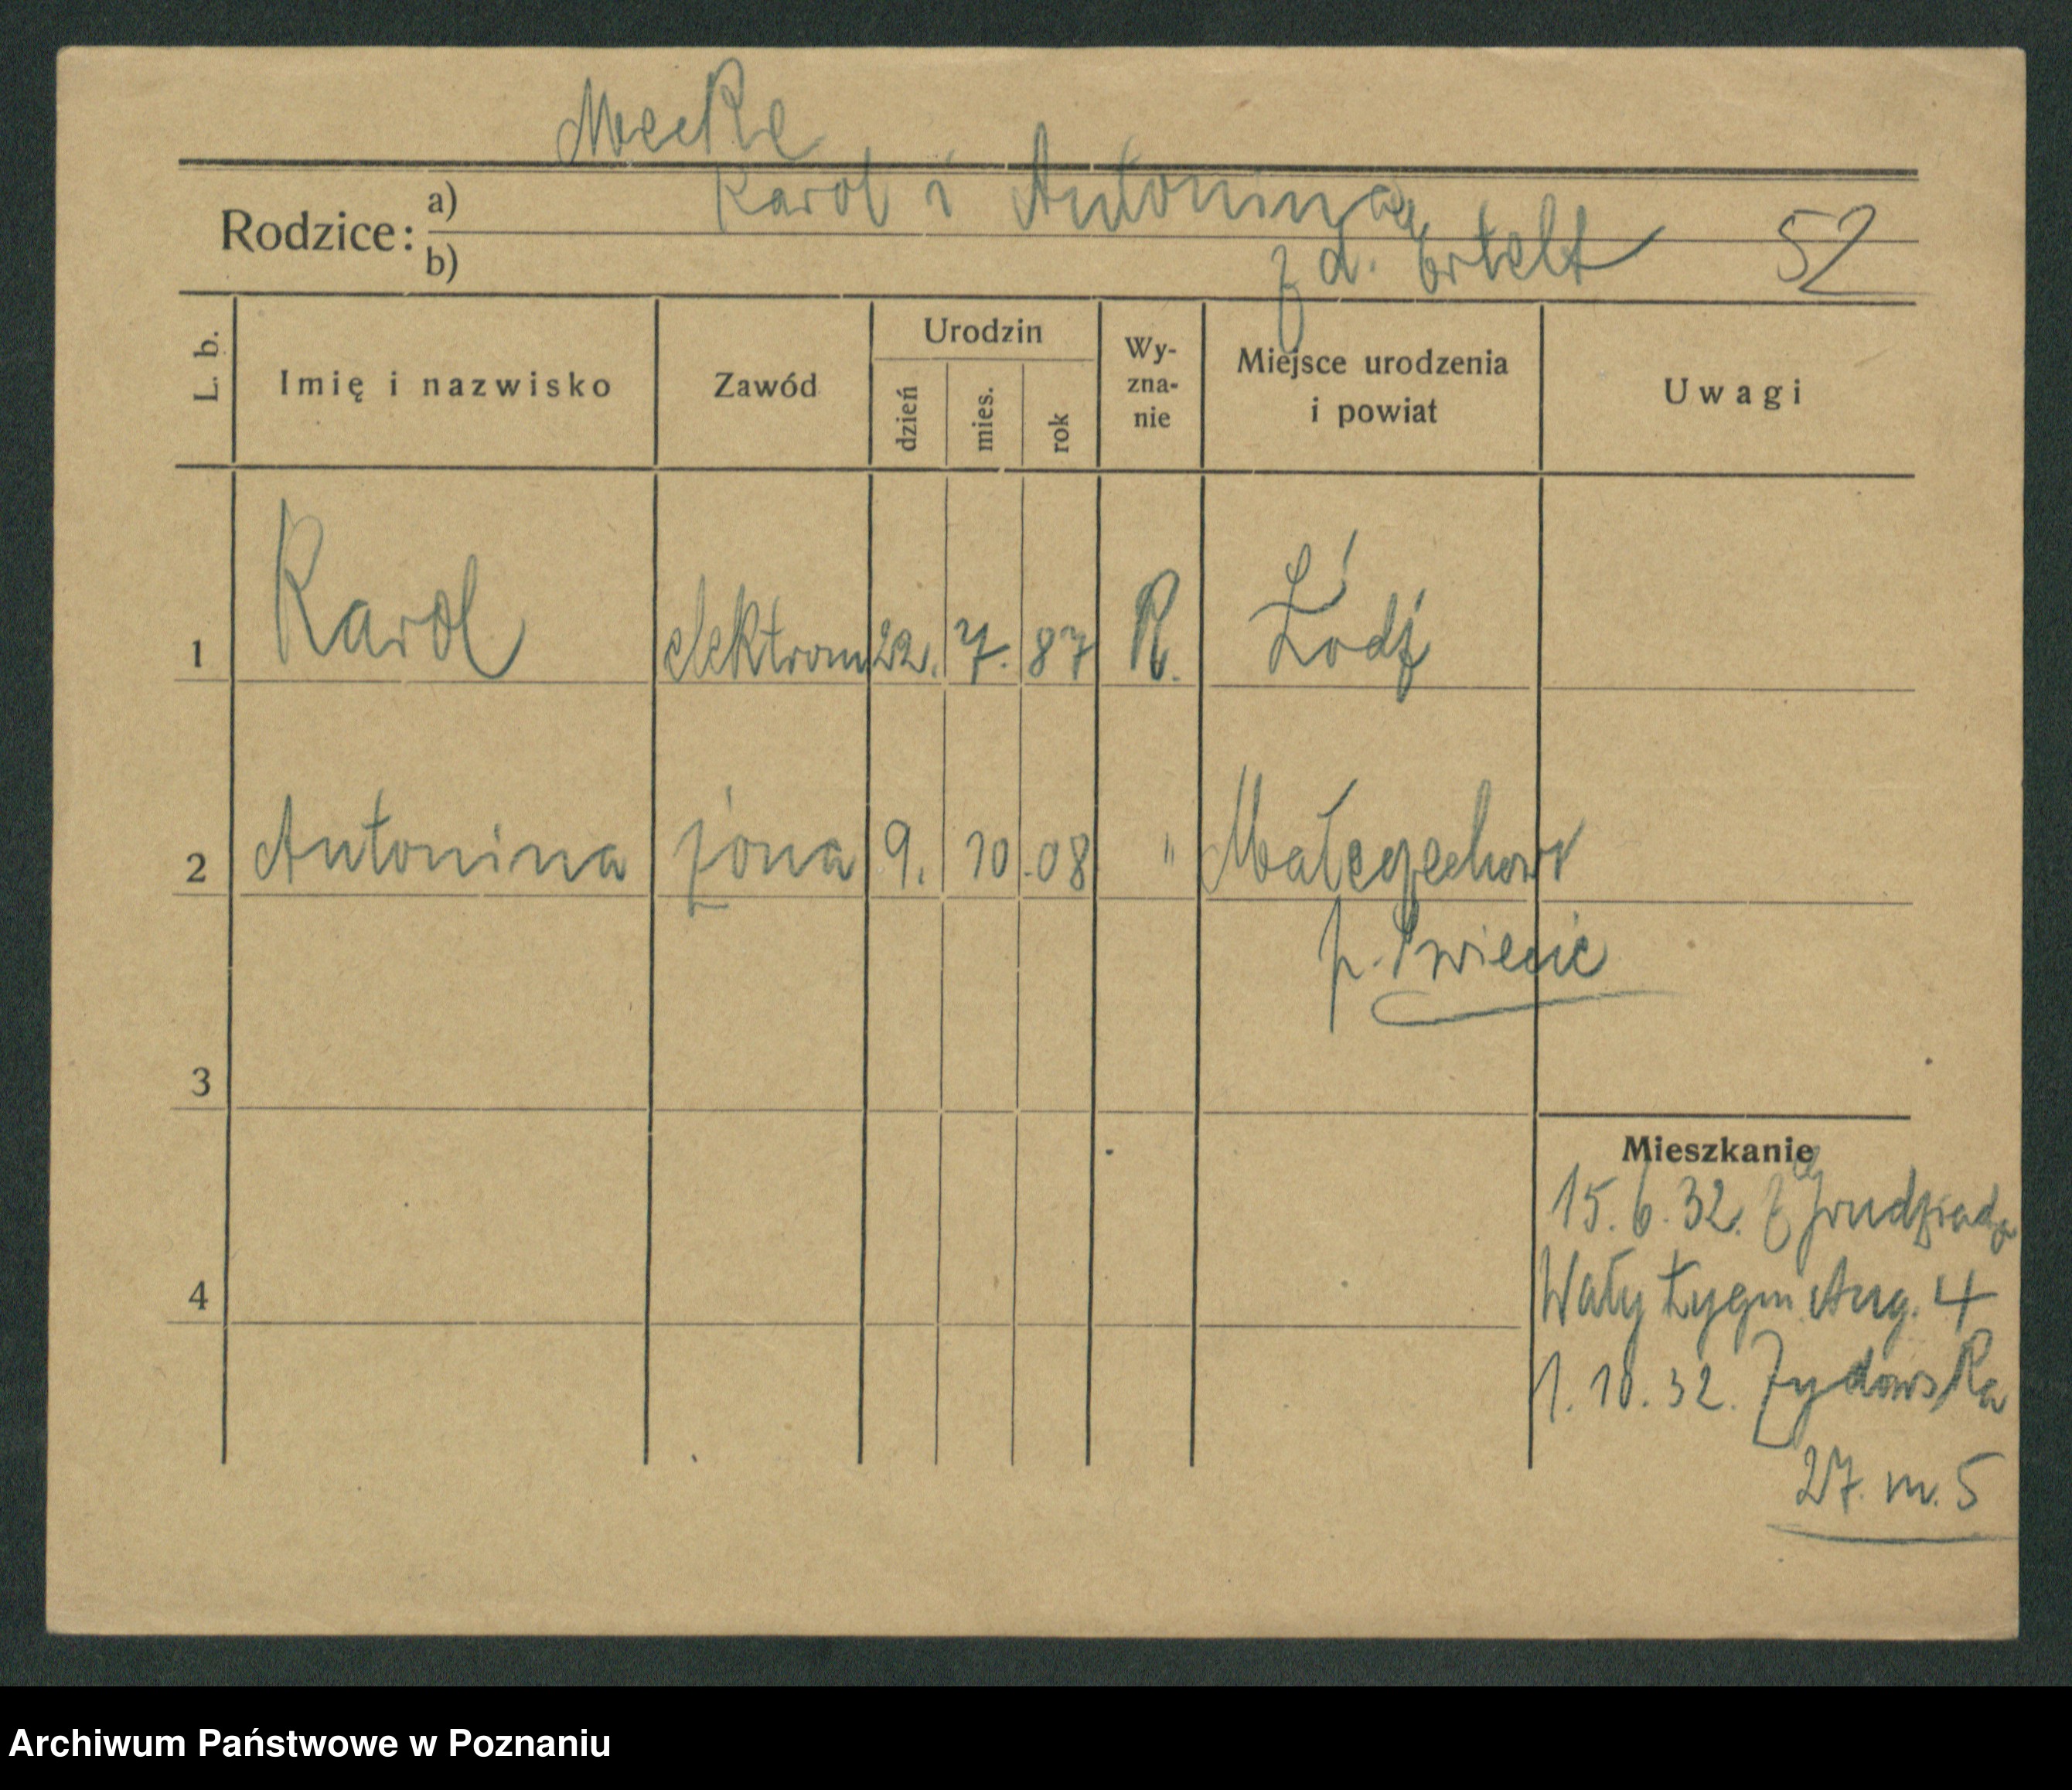 Mecke
Rodzice: a) Karol i Antonina
b) z d. Ertelt 52
L. b. Imię i nazwisko Zawód Urodzin dzień mies. rok Wy-zna-nie Miejsce urodzenia i powiat Uwagi
1 Karol elektrom 22. 7. 87 R. Łódź
2 Antonina żona 9. 10. 08 "
p. Świecie
3
Mieszkanie
15. 6. 32. z Grudziądz
4 Wały Zygm Aug. 4
1. 10. 32. Żydowska
27. m. 5
Archiwum Państwowe w Poznaniu